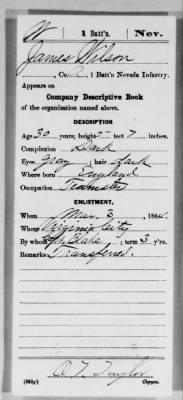 W | 1 Batt'n. | Nev.
James Wilson
, Co. A, 1 Batt'n Nevada Infantry.
Appears on
Company Descriptive Book
of the organization named above.
DESCRIPTION.
Age 30 years; height 5 feet 7 inches.
Complexion Dark
Eyes Gray; hair Dark
Where born England
Occupation Teamster
ENLISTMENT.
When Mar. 3, 1864.
Where Virginia City
By whom Blake; term 3 y'rs.
Remarks: Transferred.
Taylor
Copyist.